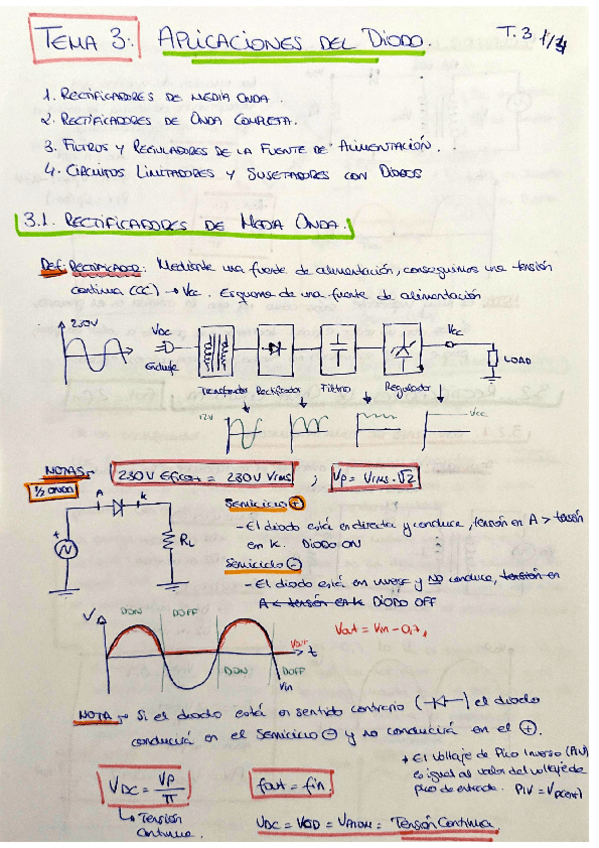 TEMA 3: APLICACIONES DEL DIODO. T.3 1/4
1. RECTIFICADORES DE MEDIA ONDA.
2. RECTIFICADORES DE ONDA COMPLETA.
3. FILTROS Y REGULADORES DE LA FUENTE DE ALIMENTACIÓN.
4. CIRCUITOS LIMITADORES Y SUJETADORES CON DIODOS
3.1. RECTIFICADORES DE MEDIA ONDA.
Def: RECTIFICADOR: Mediante una fuente de alimentación, conseguimos una tensión
continua (CC) → Vcc. Esquema de una fuente de alimentación
230V VDC Vcc
Enchufe LOAD
Transformador Rectificador Filtro Regulador
12V Vcc
NOTAS 230V Eficaz = 230V Vrms ; Vp = Vrms·√2
1/2 ONDA A K Semiciclo +
- El diodo está en directa y conduce, tensión en A > tensión
RL en K. DIODO ON
Semiciclo -
- El diodo está en inversa y NO conduce, tensión en
A < tensión en K DIODO OFF
V DON DOFF Vout = Vin - 0,7
Vout t
DON DOFF
Vin
NOTA → Si el diodo está en sentido contrario el diodo
conducirá en el semiciclo - y no conducirá en el +.
* El Voltaje de Pico Inverso (PIV)
VDC = Vp/π fout = fin es igual al valor del voltaje de
pico de entrada. PIV = Vp(ent)
Tensión
Continua. VDC = VOD = Tensión Continua.